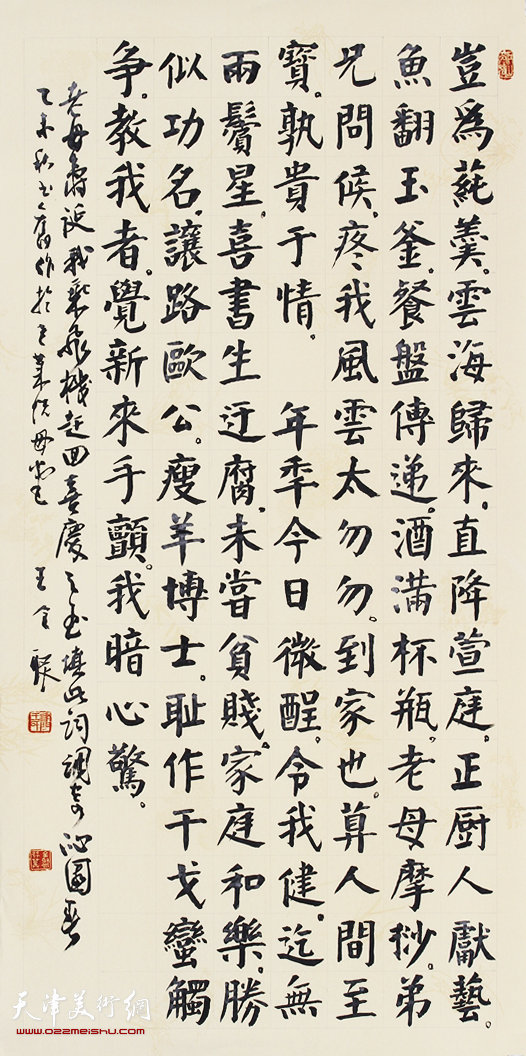 豈為蒓羹。雲海歸來。直降萱庭。正廚人獻藝。
魚翻玉釜。餐盤傳遞。酒滿杯瓶。老母摩挱。弟
兄問候。疼我風雲太匆匆。到家也。算人間至
寶。孰貴于情。 年秊今日微酲。令我健。迄無
兩鬢星。喜書生迂腐。未嘗貧賤。家庭和樂。勝
似功名。讓路歐公。瘦羊博士。恥作干戈蠻觸
爭。教我者。覺新來手顫。我暗心驚。
老母壽誕我乘飛機趕回喜慶之至填此詞調寄沁園春
乙未秋書舊作於 王全聚
天津美術網
www.022meishu.com